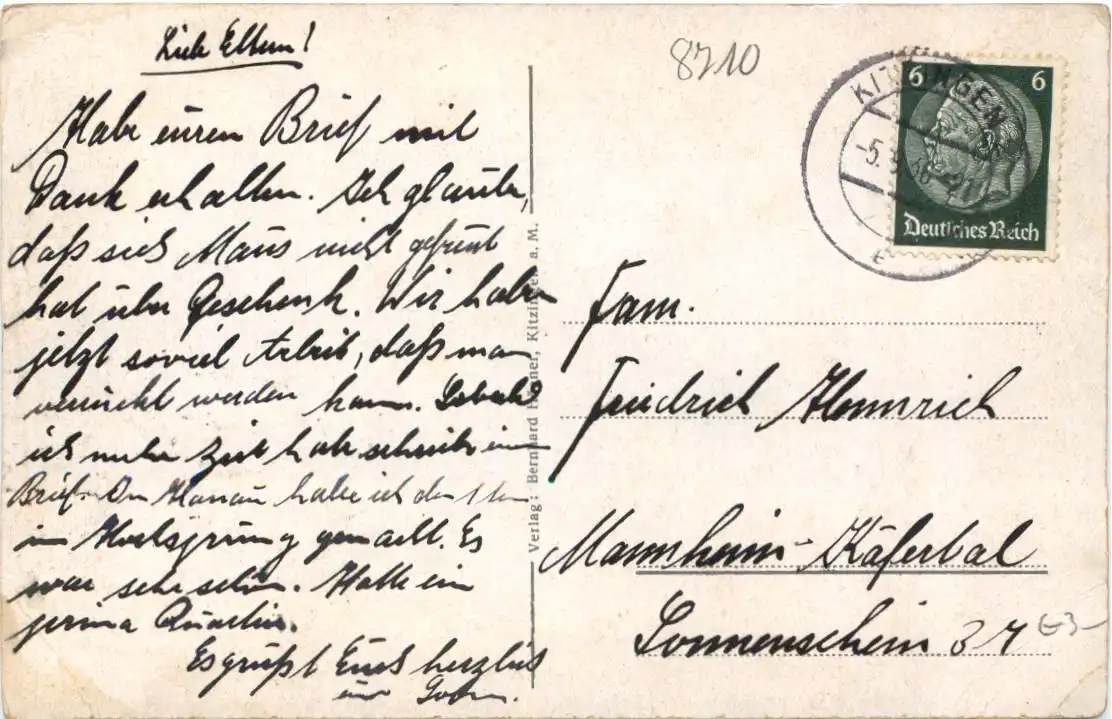 Liebe Eltern!
Habe euren Brief mit
Dank erhalten. Ich glaube,
daß sich Maus nicht gefreut
hat über Geschenk. Wir haben
jetzt soviel Arbeit, daß man
verrückt werden kann. Sobald
ich mehr Zeit habe schreibe im
Brief. In Hanau habe ich den 1ten
im Hochsprung gemacht. Es
war sehr schön. Hatte ein
prima Quartier.
Es grüßt Euch herzlich
euer
8710
KITZINGEN
-5.
6 6
Deutsches Reich
Verlag: Bernhard Kitzingen a. M.
Fam.
Friedrich Hemmrich
Mannheim-Käfertal
Sonnenschein 37